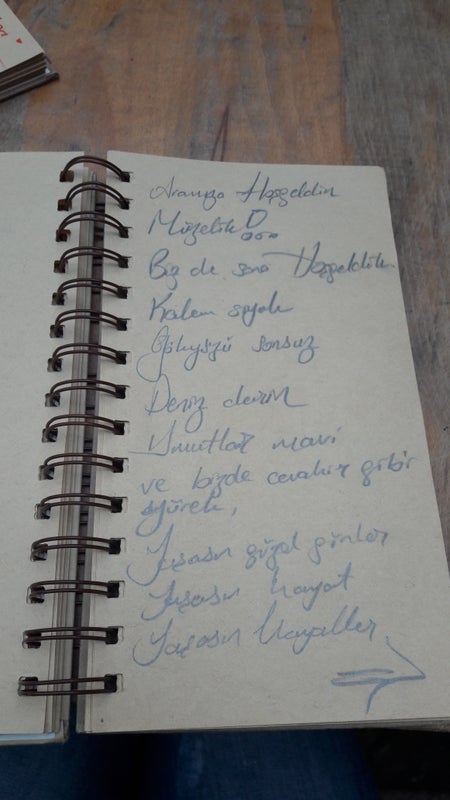 Aramıza Hoşgeldin
Müzelik D...
Biz de sana Hoşgeldik.
Kalem siyah
Gökyüzü sonsuz
Deniz derin
Umutlar mavi
ve bizde cevahir gibir
yürek,
Yaşasın güzel günler
Yaşasın hayat
Yaşasın Hayaller